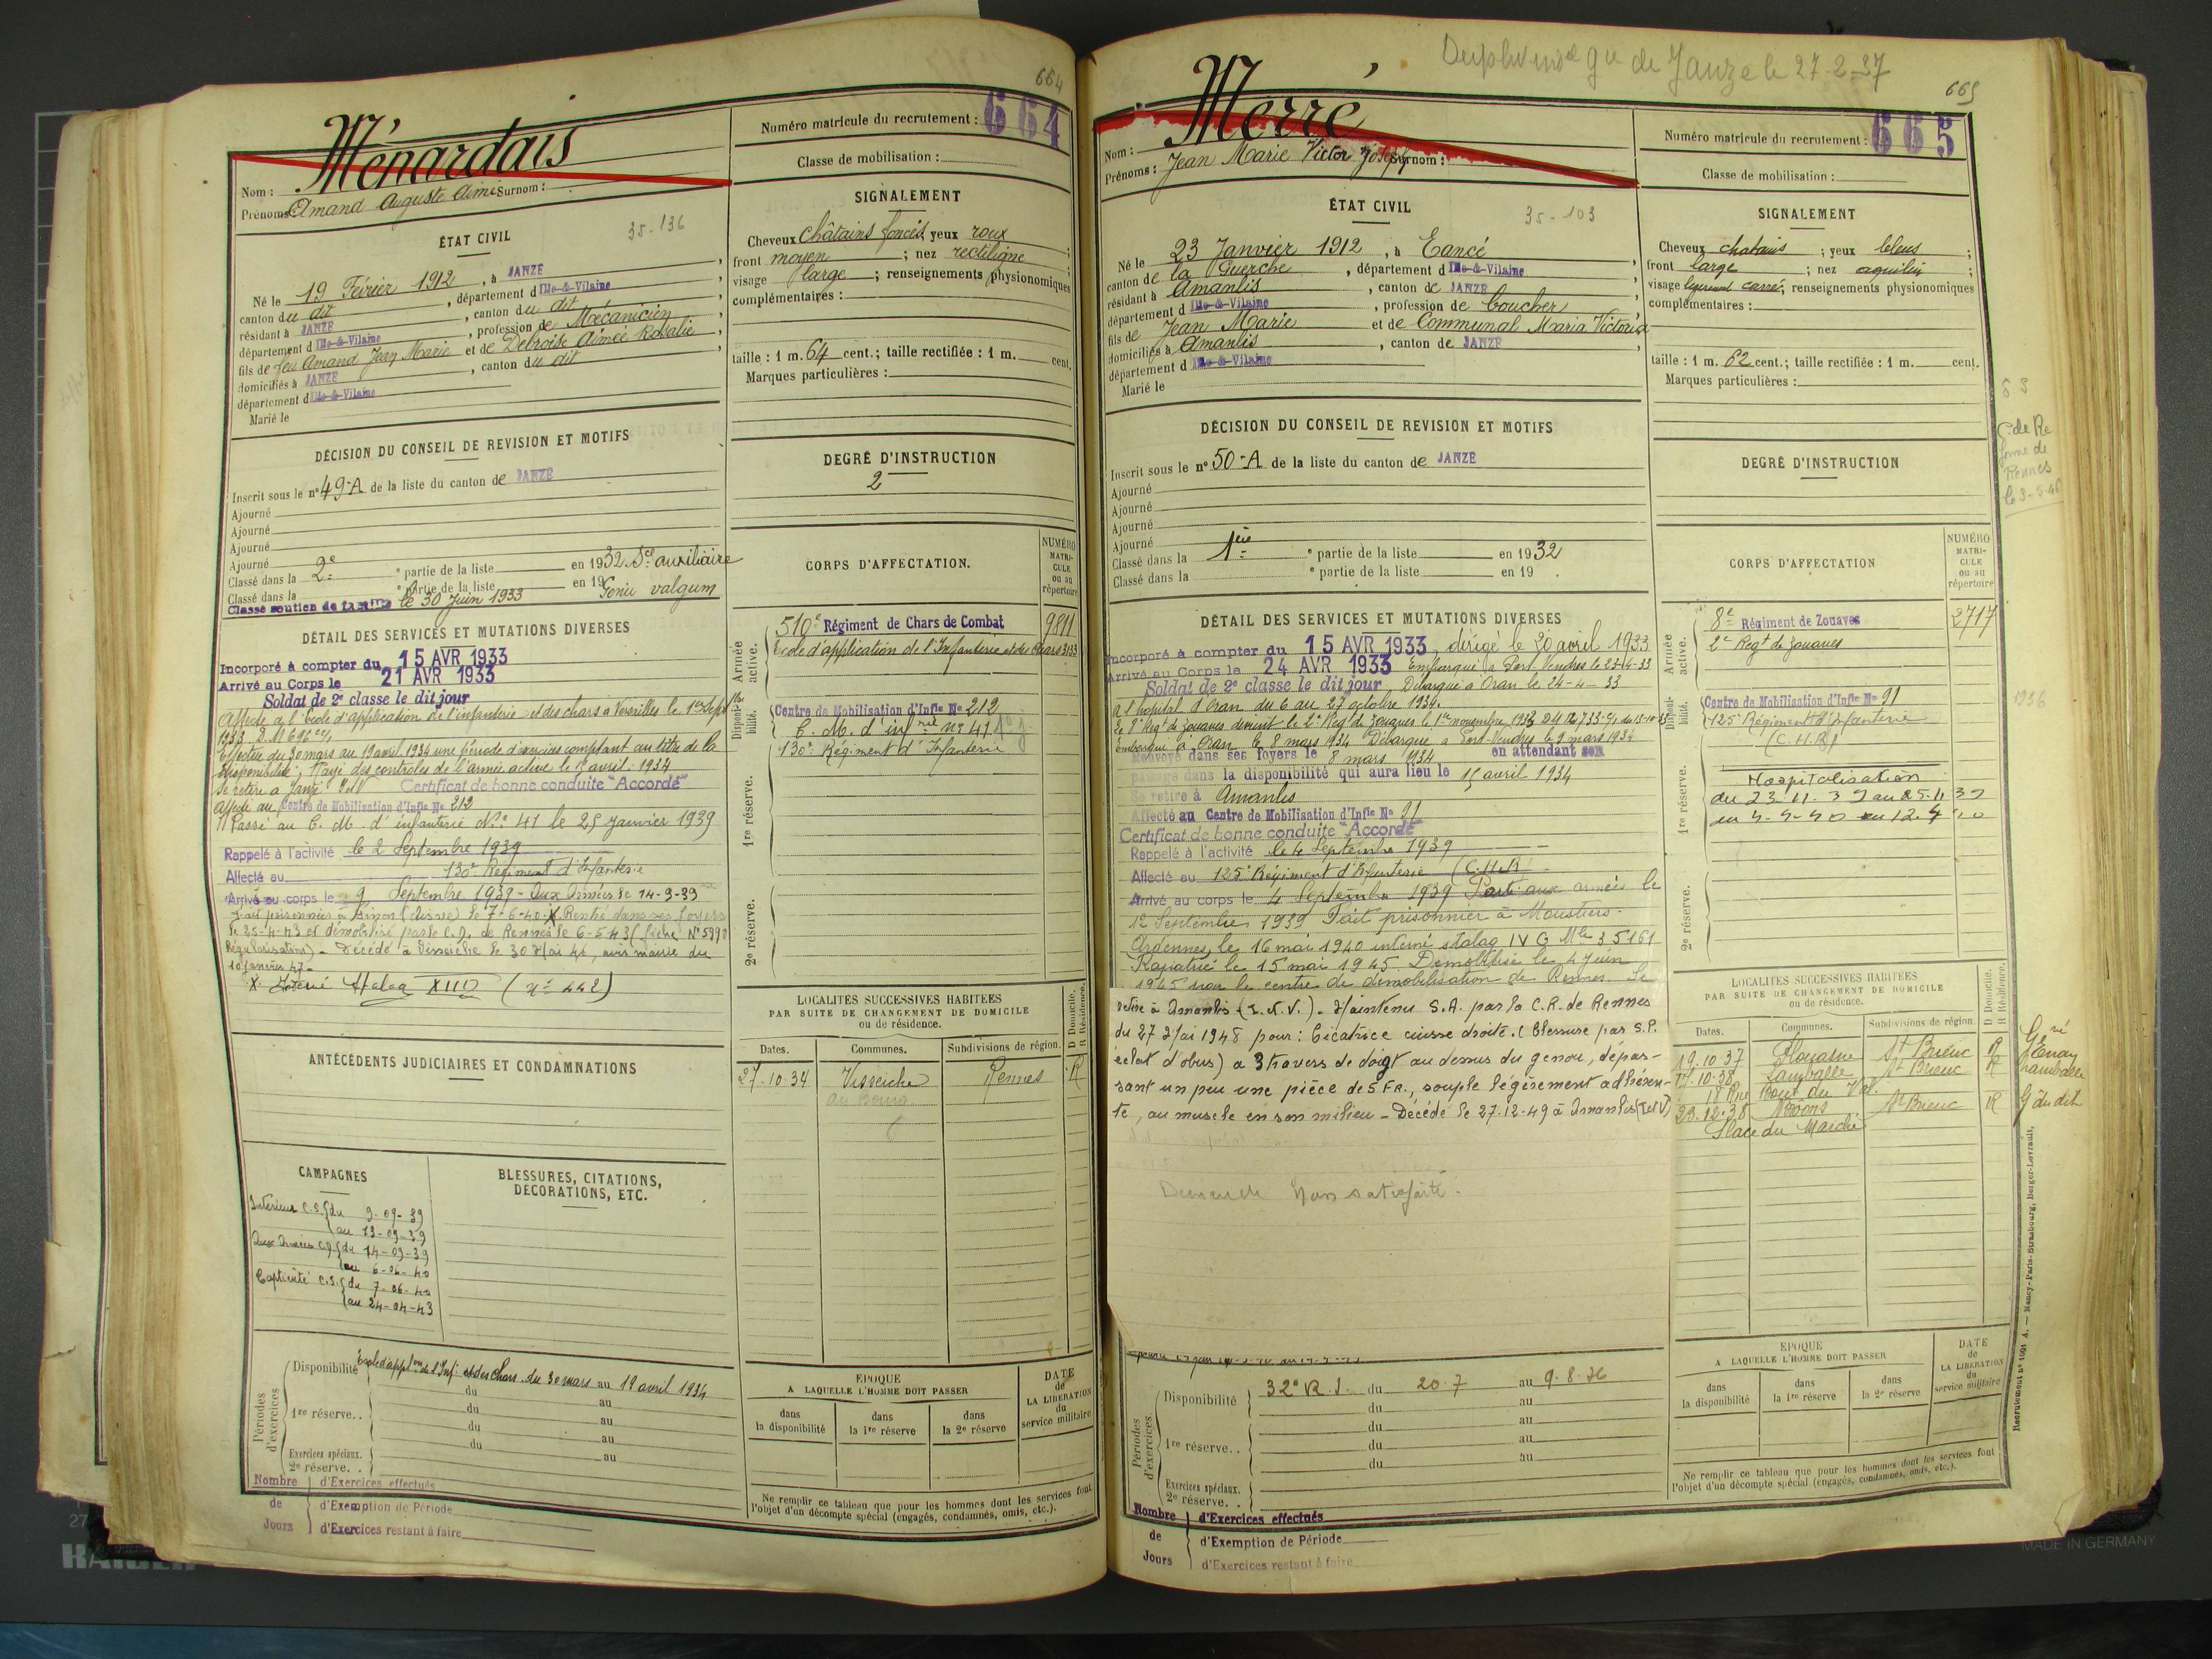 664
Ménardais
Nom :
Prénoms : Amand Auguste Aimé Surnom :
Numéro matricule du recrutement : 664
Classe de mobilisation :
ÉTAT CIVIL
35-136
Né le 19 Février 1912, à JANZÉ,
canton du dit, département d'Ille-&-Vilaine,
résidant à JANZÉ, canton du dit,
département d'Ille-&-Vilaine, profession de Mécanicien,
fils de feu Amand Jean Marie et de Debroise Aimée Rosalie,
domiciliés à JANZÉ, canton du dit
département d'Ille-&-Vilaine
Marié le
SIGNALEMENT
Cheveux châtains foncés yeux roux ;
front moyen ; nez rectiligne ;
visage large ; renseignements physionomiques
complémentaires :
taille : 1 m. 64 cent.; taille rectifiée : 1 m. cent.
Marques particulières :
DÉCISION DU CONSEIL DE REVISION ET MOTIFS
Inscrit sous le n° 49-A de la liste du canton de JANZÉ
Ajourné
Ajourné
Ajourné
Ajourné
Classé dans la 2e partie de la liste en 1932 Sce auxiliaire
Classé dans la partie de la liste en 19 Genu valgum
Classé soutien de famille le 30 Juin 1933
DEGRÉ D'INSTRUCTION
2
DÉTAIL DES SERVICES ET MUTATIONS DIVERSES
Incorporé à compter du 15 AVR 1933
Arrivé au Corps le 21 AVR 1933
Soldat de 2e classe le dit jour
Affecté à l'école d'application de l'infanterie et des chars à Versailles le 1er Sept
1933 D.M.
Effectue du 30 mars au 19 avril 1934 une période d'exercices comptant au titre de la
disponibilité, Rayé des contrôles de l'armée active le avril 1934
Se retire à Janzé I & V Certificat de bonne conduite "Accordé"
Affecté au Centre de Mobilisation d'Infie No 212
Passé au C. M. d'infanterie N° 41 le 25 janvier 1939
Rappelé à l'activité le 2 Septembre 1939
Affecté au 130e Régiment d'Infanterie
Arrivé au corps le 9 Septembre 1939 - Aux Armées le 14-9-39
Fait prisonnier à (Aisne) le 7-6-40 X Rentré dans ses foyers
le 25-4-43 et démobilisé par le C.D. de Rennes le 6-5-43 (fiche N°
Régularisation) - Décédé à Visseiche le 30 Mai 46, avis mairie du
10 janvier 47 -
X Interné Stalag XIII D (n° 442)
ANTÉCÉDENTS JUDICIAIRES ET CONDAMNATIONS
CORPS D'AFFECTATION.
NUMÉRO MATRICULE ou au répertoire
Armée active.
510e Régiment de Chars de Combat 9811
Ecole d'application de l'Infanterie et des Chars 3133
Disponibilité.
Centre de Mobilisation d'Infie No 212
C. M. d'infrie n° 41
130e Régiment d'Infanterie
1re réserve.
2e réserve.
LOCALITÉS SUCCESSIVES HABITÉES
PAR SUITE DE CHANGEMENT DE DOMICILE
ou de résidence.
D Domicile. R Résidence.
Dates. Communes. Subdivisions de région.
27-10-34 Visseiche Rennes R
au Bourg
CAMPAGNES
Intérieur C.S. du 9-09-39
au 13-09-39
Aux Armées C.D. du 14-09-39
au 6-06-40
Captivité C.S. du 7-06-40
au 24-04-43
BLESSURES, CITATIONS,
DÉCORATIONS, ETC.
Périodes d'exercices
Disponibilité Ecole d'applon de l'Inf. et des Chars du 30 mars au 19 avril 1934
du au
1re réserve.. du au
du au
du au
Exercices spéciaux.
2e réserve. . au
Nombre de Jours
d'Exercices effectués
d'Exemption de Période
d'Exercices restant à faire
ÉPOQUE
A LAQUELLE L'HOMME DOIT PASSER
dans la disponibilité
dans la 1re réserve
dans la 2e réserve
DATE de LA LIBÉRATION du service militaire
Ne remplir ce tableau que pour les hommes dont les services font
l'objet d'un décompte spécial (engagés, condamnés, omis, etc.).
de Janzé le 27-2-37
665
Merré
Nom :
Prénoms : Jean Marie Victor Joseph Surnom :
Numéro matricule du recrutement : 665
Classe de mobilisation :
ÉTAT CIVIL
35-103
Né le 23 Janvier 1912, à Eancé,
canton de la Guerche, département d'Ille-&-Vilaine,
résidant à Amanlis, canton de JANZÉ,
département d'Ille-&-Vilaine, profession de boucher,
fils de Jean Marie et de Communal Maria Victoria
domiciliés à Amanlis, canton de JANZÉ,
département d'Ille-&-Vilaine
Marié le
SIGNALEMENT
Cheveux chatains ; yeux bleus ;
front large ; nez aquilin ;
visage légèrement carré ; renseignements physionomiques
complémentaires :
taille : 1 m. 62 cent.; taille rectifiée : 1 m. cent.
Marques particulières :
C. de Ré
forme de
Rennes
le 3-5-48
DÉCISION DU CONSEIL DE REVISION ET MOTIFS
Inscrit sous le n° 50-A de la liste du canton de JANZÉ
Ajourné
Ajourné
Ajourné
Ajourné
Classé dans la 1ère partie de la liste en 1932
Classé dans la partie de la liste en 19 .
DEGRÉ D'INSTRUCTION
DÉTAIL DES SERVICES ET MUTATIONS DIVERSES
Incorporé à compter du 15 AVR 1933, dirigé le 20 avril 1933
Arrivé au Corps le 24 AVR 1933 Embarqué à Port-Vendres le 23-4-33
Soldat de 2e classe le dit jour Débarqué à Oran le 24-4-33
à l'hopital d'Oran du 6 au 27 octobre 1934.
Le 8e Régt de Zouaves devient le 2e Régt de Zouaves le 1er novembre 1933
Embarqué à Oran le 8 mars 1934 Débarqué à Port-Vendres le 9 mars 1934
Renvoyé dans ses foyers le 8 mars 1934 en attendant son
passage dans la disponibilité qui aura lieu le 15 avril 1934
Se retire à Amanlis
Affecté au Centre de Mobilisation d'Infie No 91
Certificat de bonne conduite "Accordé"
Rappelé à l'activité le 4 Septembre 1939
Affecté au 125e Régiment d'Infanterie (C.H.R)
Arrivé au corps le 4 Septembre 1939 Parti aux armées le
12 Septembre 1939 Fait prisonnier à Moustiers
Ardennes, le 16 mai 1940 interné stalag IV G Mle 35161
Rapatrié le 15 mai 1945. Démobilisé le 4 Juin
1945 par le centre de démobilisation de Rennes. Se
retire à Amanlis (I.&V.) - Maintenu S.A. par la C.R. de Rennes
du 27 Mai 1948 pour : Cicatrice cuisse droite. (blessure par S.P.
éclat d'obus) a 3 travers de doigt au dessus du genou, dépas-
sant un peu une pièce de 5 FR., souple légèrement adhéren-
te, au muscle en son milieu - Décédé le 27-12-49 à Amanlis (I et V)
Demande Non satisfaite.
CORPS D'AFFECTATION
NUMÉRO MATRICULE ou au répertoire
Armée active.
8e Régiment de Zouaves 2717
2e Régt de Zouaves
Disponibilité.
Centre de Mobilisation d'Infie No 91
125e Régiment d'Infanterie
(C.H.R)
1936
1re réserve.
Hospitalisation
du 23-11-39 au 25-11-39
2e réserve.
LOCALITÉS SUCCESSIVES HABITÉES
PAR SUITE DE CHANGEMENT DE DOMICILE
ou de résidence.
D Domicile. R Résidence.
Dates. Communes. Subdivisions de région
19.10.37 Plouasne St Brieuc R
17.10.38 Lamballe St Brieuc R
18 Rue
29.12.38 Broons St Brieuc R
Place du Marché
Lamballe
G du dit
Périodes d'exercices
Disponibilité 32e R.I. du 20.7 au 9.8.36
du au
du au
1re réserve. . du au
du au
Exercices spéciaux.
2e réserve. .
Nombre de Jours
d'Exercices effectués
d'Exemption de Période
d'Exercices restant à faire
ÉPOQUE
A LAQUELLE L'HOMME DOIT PASSER
dans la disponibilité
dans la 1re réserve
dans la 2e réserve
DATE de LA LIBÉRATION du service militaire
Ne remplir ce tableau que pour les hommes dont les services font
l'objet d'un décompte spécial (engagés, condamnés, omis, etc.).
Recrutement n° 1001 A. — Nancy-Paris-Strasbourg, Berger-Levrault.
MADE IN GERMANY